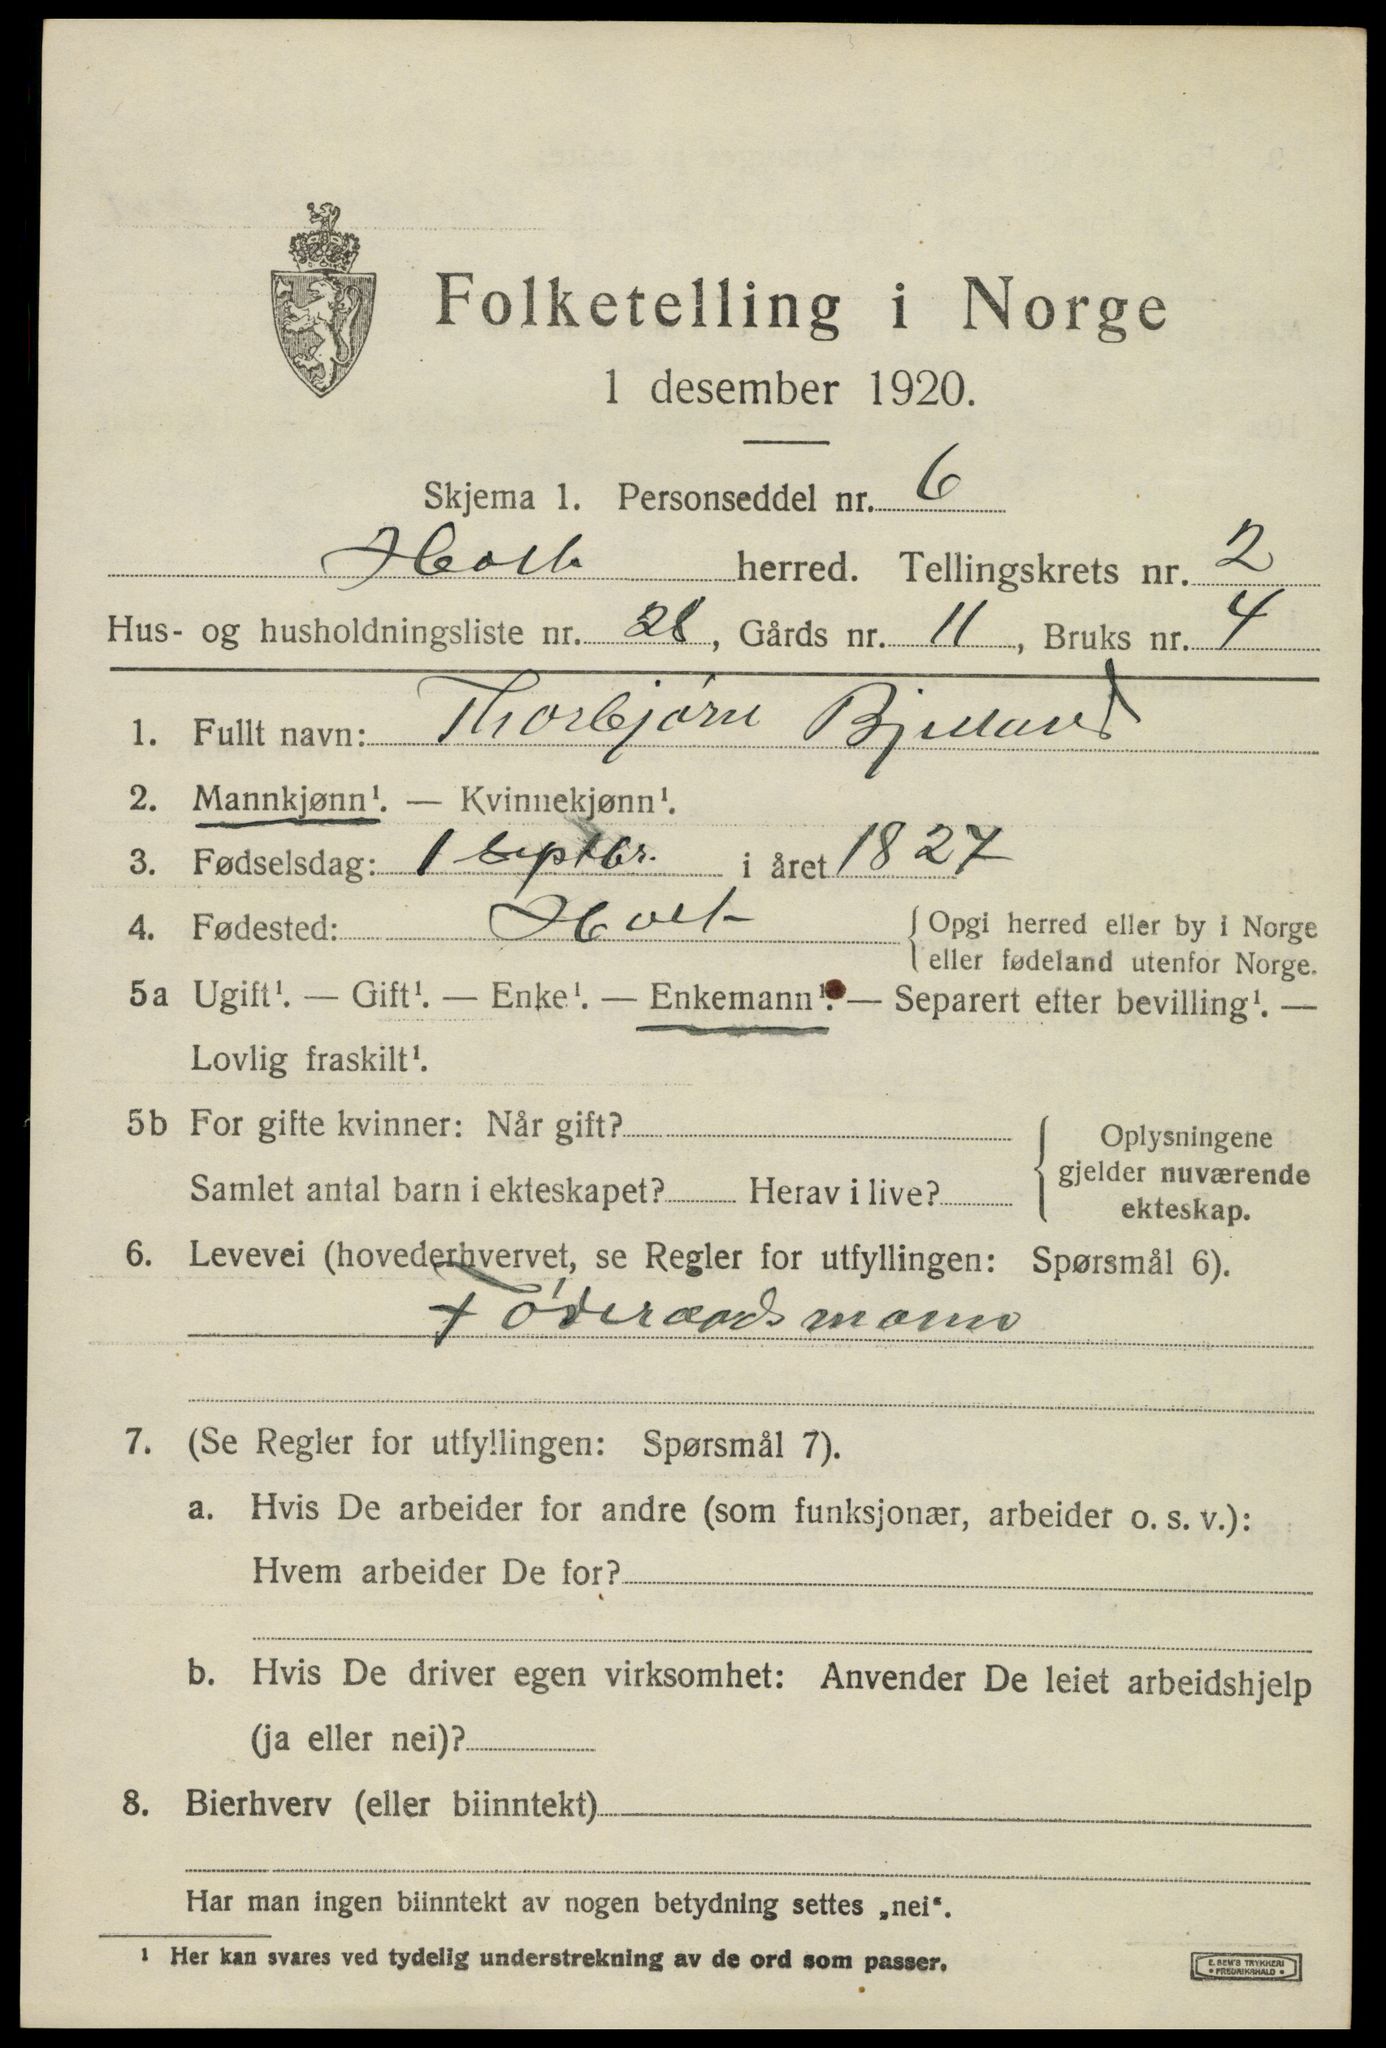 Folketelling i Norge
1 desember 1920.
Skjema 1. Personseddel nr. 6
Holt herred. Tellingskrets nr. 2
Hus- og husholdningsliste nr. 28, Gårds nr. 11, Bruks nr. 4
1. Fullt navn: Thorbjørn Bjelland
2. Mannkjønn¹. — Kvinnekjønn¹.
3. Fødselsdag: 1 septbr. i året 1827
4. Fødested: Holt { Opgi herred eller by i Norge
eller fødeland utenfor Norge.
5a Ugift¹. — Gift¹. — Enke¹. — Enkemann¹. — Separert efter bevilling¹. —
Lovlig fraskilt¹.
5b For gifte kvinner: Når gift?
Samlet antal barn i ekteskapet? Herav i live?
Oplysningene
gjelder nuværende
ekteskap.
6. Levevei (hovederhvervet, se Regler for utfyllingen: Spørsmål 6).
Føderaadsmann
7. (Se Regler for utfyllingen: Spørsmål 7).
a. Hvis De arbeider for andre (som funksjonær, arbeider o. s. v.):
Hvem arbeider De for?
b. Hvis De driver egen virksomhet: Anvender De leiet arbeidshjelp
(ja eller nei)?
8. Bierhverv (eller biinntekt)
Har man ingen biinntekt av nogen betydning settes „nei“.
¹ Her kan svares ved tydelig understrekning av de ord som passer.
E. SEM'S TRYKKERI
• FREDRIKSHALD •